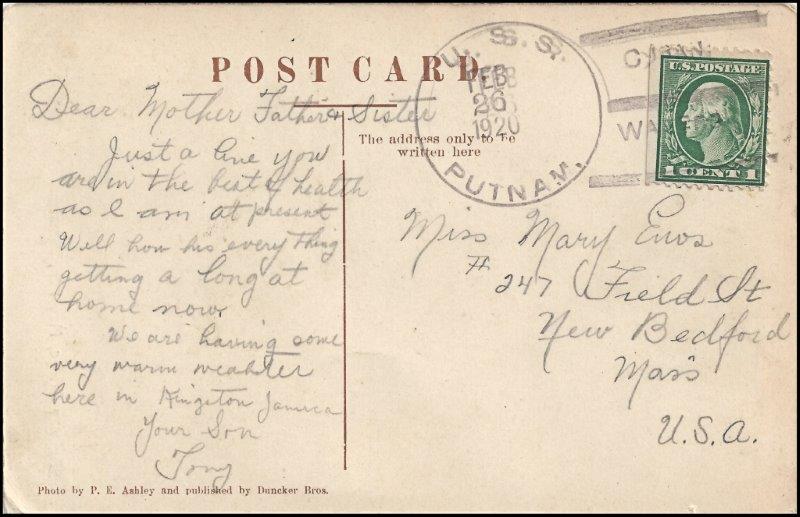 POST CARD
The address only to be
written here
U. S. S.
FEB
26
1920
PUTNAM.
U.S. POSTAGE
1 CENT 1
Dear Mother Father & Sister
Just a line you
are in the best of health
as I am at present
Well how his everything
getting a long at
home now,
We are having some
very warm weahter
here in Kingston Jamica
Your Son
Tony
Miss Mary Enos
# 247 Field St
New Bedford
Mass
U.S.A.
Photo by P. E. Ashley and published by Duncker Bros.